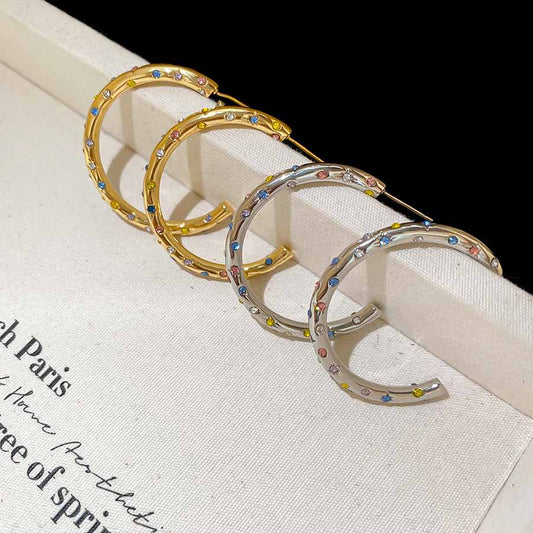 ch Paris
Home Aesthetic
ree of sprin